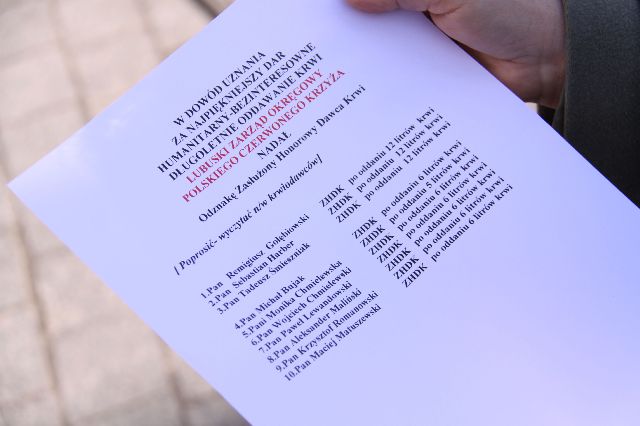 W DOWÓD UZNANIA
ZA NAJPIĘKNIEJSZY DAR
HUMANITARNY-BEZINTERESOWNE
DŁUGOLETNIE ODDAWANIE KRWI
LUBUSKI ZARZĄD OKRĘGOWY
POLSKIEGO CZERWONEGO KRZYŻA
NADAŁ
Odznakę Zasłużony Honorowy Dawca Krwi
[ Poprosić- wyczytać n/w krwiodawców]
1.Pan Remigiusz Gołębiowski ZHDK po oddaniu 12 litrów krwi
2.Pan Sebastian Harber ZHDK po oddaniu 12 litrów krwi
3.Pan Tadeusz Śmieszniak ZHDK po oddaniu 12 litrów krwi
4.Pan Michał Bujak ZHDK po oddaniu 6 litrów krwi
5.Pani Monika Chmielewska ZHDK po oddaniu 5 litrów krwi
6.Pan Wojciech Chmielewski ZHDK po oddaniu 6 litrów krwi
7.Pan Paweł Lewandowski ZHDK po oddaniu 6 litrów krwi
8.Pan Aleksander Maliński ZHDK po oddaniu 6 litrów krwi
9.Pan Krzysztof Romanowski ZHDK po oddaniu 6 litrów krwi
10.Pan Maciej Matuszewski ZHDK po oddaniu 6 litrów krwi